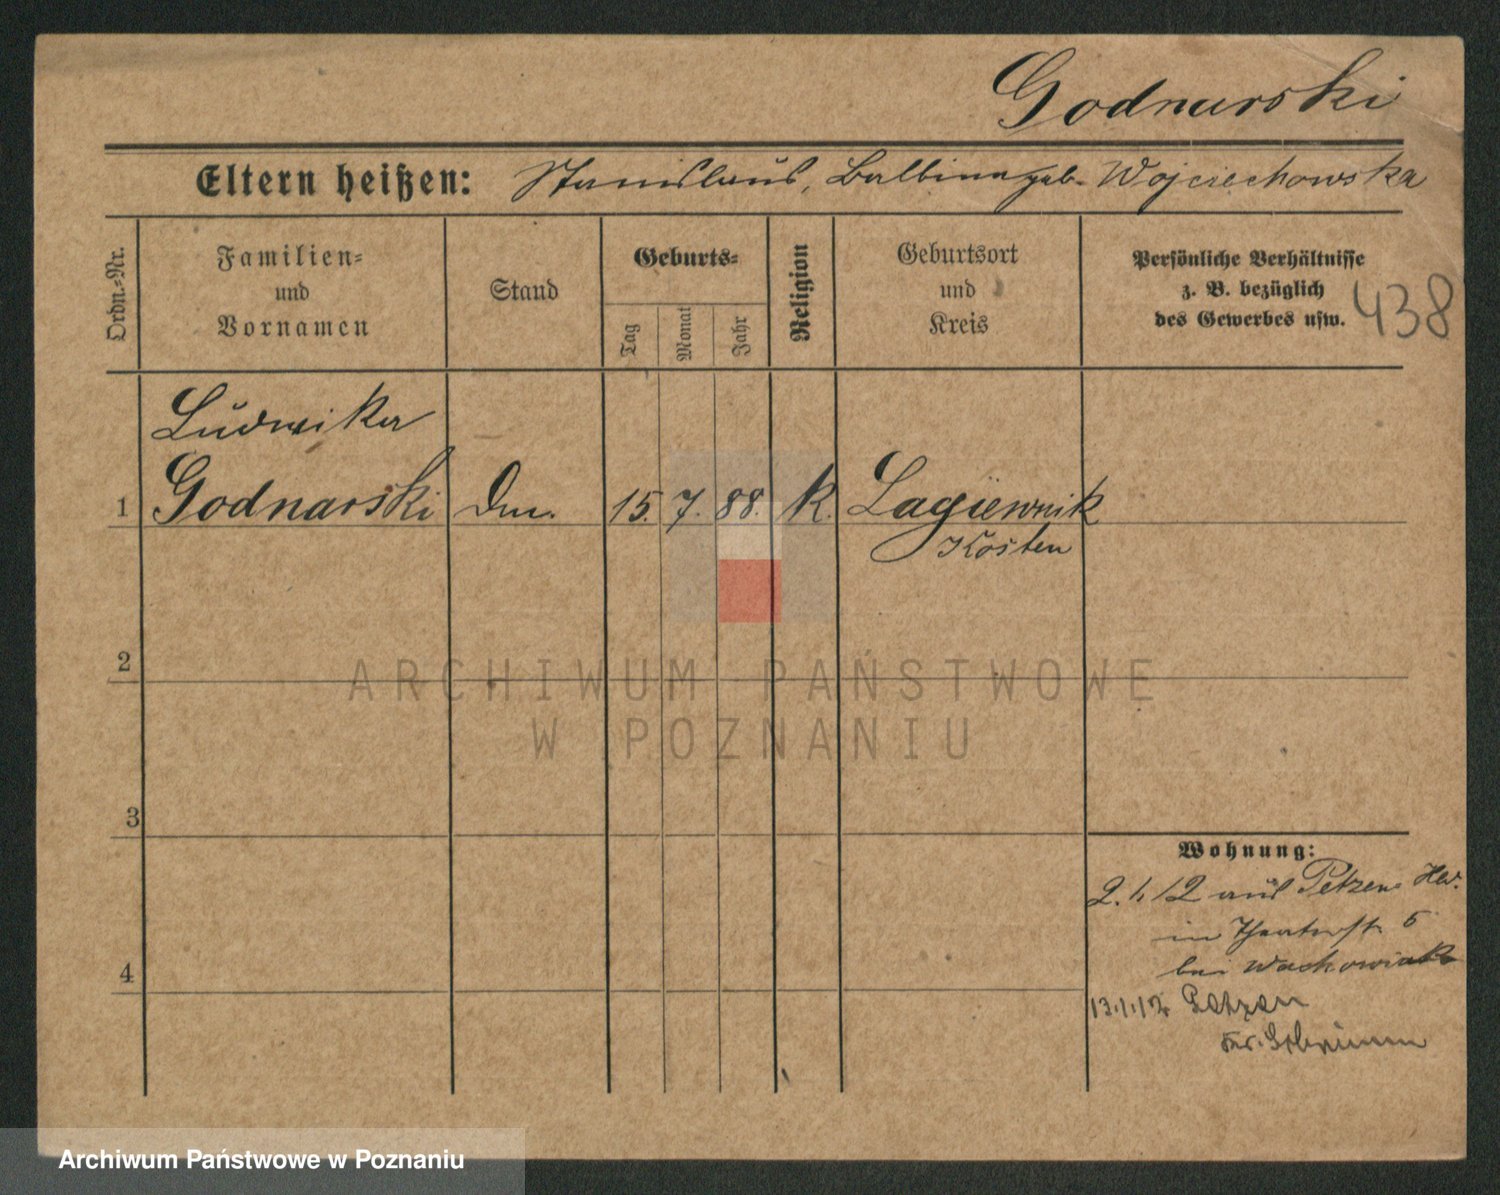 Godnarski
Eltern heißen: Stanislaus, Balbina geb. Wojciechowska
Ordn.-Nr.
Familien-
und
Vornamen
Stand
Geburts-
Tag
Monat
Jahr
Religion
Geburtsort
und
Kreis
Persönliche Verhältnisse
z. B. bezüglich
des Gewerbes usw.
438
Ludwika
1 Godnarski 15. 7. 88. k. Lagiewnik
Kosten
2
3
4
ARCHIWUM PAŃSTWOWE
W POZNANIU
Wohnung:
2.1.12 aus Petzen
in Theaterstr. 5
bei Waskowiak
13.1.12 Petzen
Archiwum Państwowe w Poznaniu